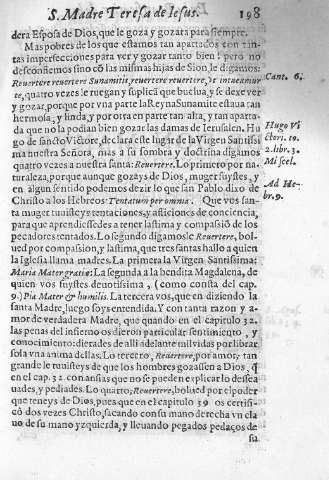 S. Madre Teresa de Iesus. 198
dera Esposa de Dios, que le goza y gozarà para siempre.
Mas pobres de los que estamos tan apartados con tan-
tas imperfecciones para ver y gozar tanto bien! pero no
desconfiemos sino cõ las mismas hijas de Sion le digamos:
Reuertere reuertere Sunamitis, reuertere reuertere, vt intueamur
te, quatro vezes le ruegan y suplicã que buelua, y se dexe ver
y gozar, porque por vna parte la Reyna Sunamite estaua tan
hermosa, y linda, y por otra en parte tan alta, y tan aparta
da que no la podian bien gozar las damas de Ierusalen. Hu
go de sancto Victore, declara este lugar de la Virgen Santissi
ma nuestra Señora, mas a su sombra y doctrina digamos
quatro vezes a nuestra santa: Reuertere. Lo primero por na-
turaleza, porque aunque gozays de Dios, muger fuystes, y
en algun sentido podemos dezir lo que san Pablo dixo de
Christo a los Hebreos: Tentatum per omnia. Que vos san-
ta muger tuuistes tentaciones, y aflicciones de conciencia,
para que aprendiessedes a tener lastima y compassiõ de los
pecadores tentados. Lo segundo digamosle Reuertere, bol-
ued por compassion, y lastima, que tres santas hallo a quien
la Iglesia llama madres. La primera la Virgen Santissima:
Maria Mater gratiæ: La segunda a la bendita Magdalena, de
quien vos fuystes deuotissima, (como consta del cap.
9.) Pia Mater & humilis. La tercera vos, que en diziendo la
santa Madre, luego soys entendida. Y con tanta razon y a-
mor de verdadera Madre, que quando en el capitulo 32.
las penas del infierno os dieron particular sentimiento, y
conocimiento: dierades de alli adelante mil vidas por librar
sola vna anima dellas. Lo tercero, Reuertere, por amor, que tan
grande le tuuistes de que los hombres gozassen a Dios, q̃
en el cap. 32. con ansias que no se pueden explicar lo dessea
uades, y pediades. Lo quarto, Reuertere, bolued por el poder
que teneys de Dios, pues que en el capitulo 39 os certifi-
có dos vezes Christo, sacando con su mano derecha vn cla
uo de su mano yzquierda, y lleuando pegados pedaços de
su
Cant. 6.
Hugo Vi
ctori. to.
2. lib. 3.
Miscel.
Ad He-
br. 9.